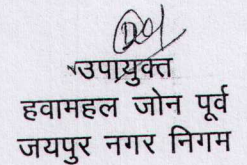 उपायुक्त
हवामहल जोन पूर्व
जयपुर नगर निगम